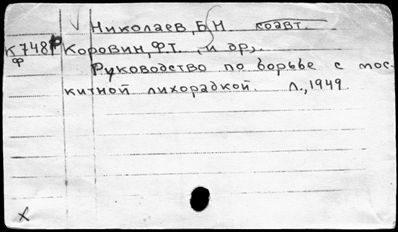 Николаев, Б.Н. коавт.
К748 Коровин, Ф.Т. и др.
Ф Руководство по борьбе с мос-
китной лихорадкой. Л., 1949.